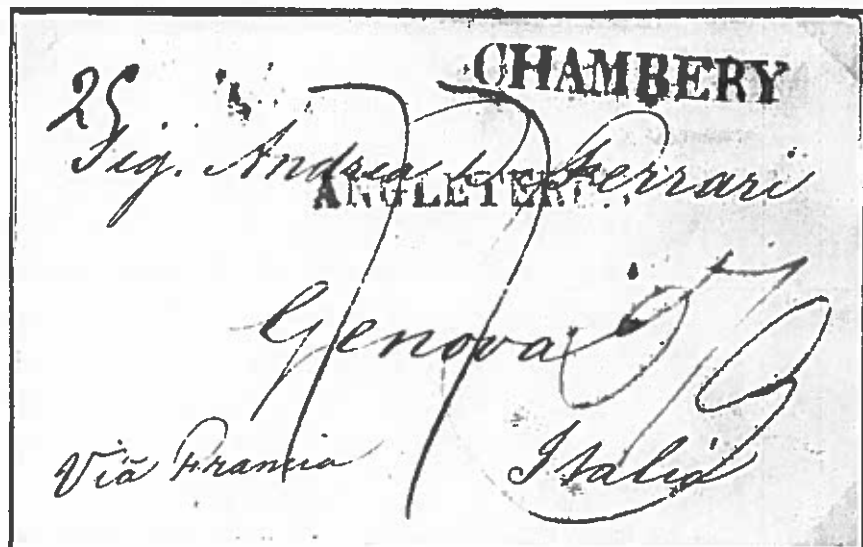 CHAMBERY
25
Sig. Andrea D. Ferrari
ANGLETER
Genova
Viã Francia
Italia